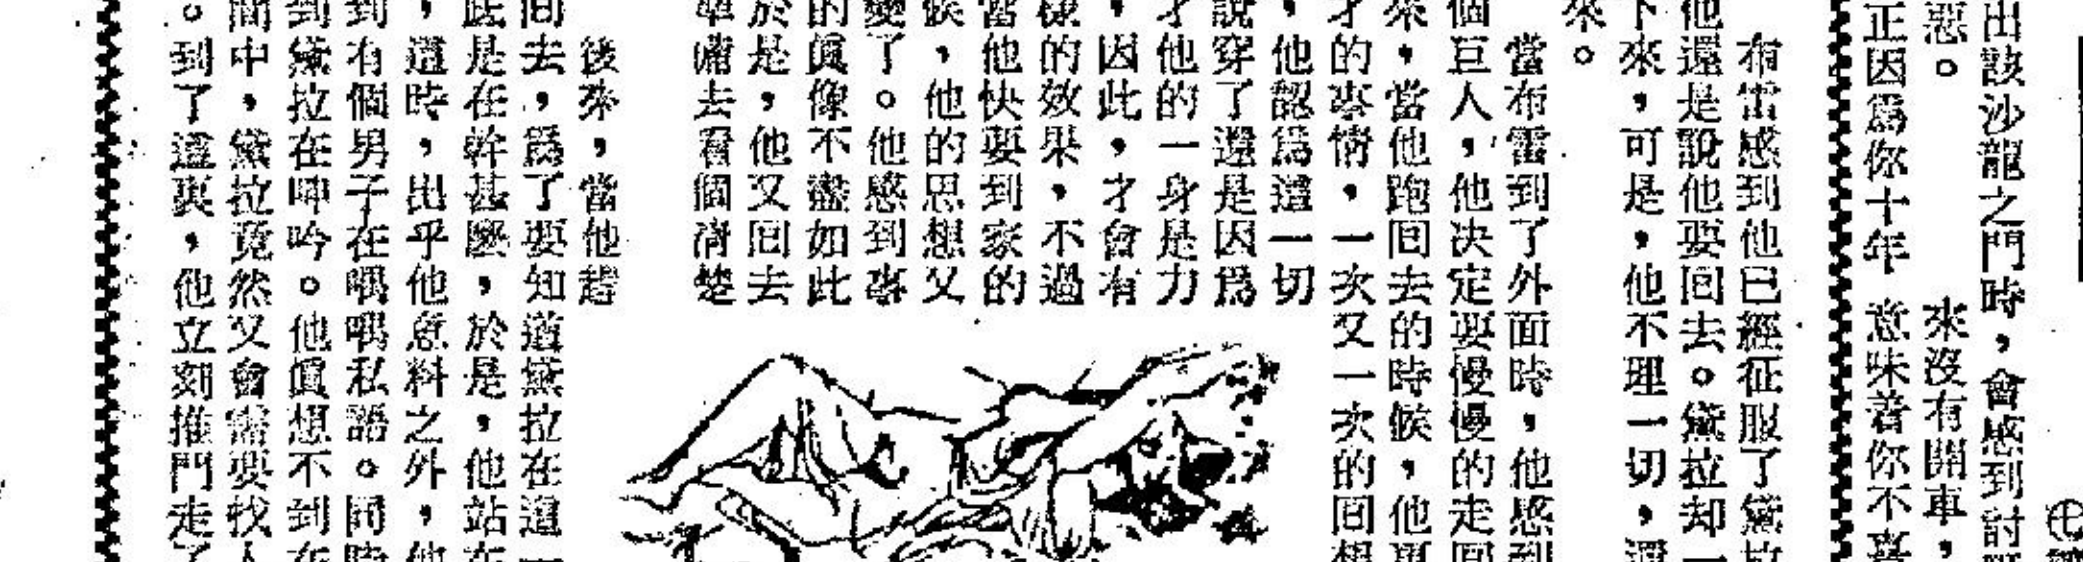 出該沙龍之門時，會感到討
惡。
來沒有開車，
正因爲你十年
意味着你不喜
布雷感到他已經征服了黛拉
他還是說他要回去。黛拉却一
下來，可是，他不理一切，還
來。
當布雷到了外面時，他感到
個巨人，他決定要慢慢的走回
來，當他跑回去的時候，他再
才的事情，一次又一次的回想
，他認爲這一切
說穿了還是因爲
才他的一身是力
，因此，才會有
樣的效果，不過
當他快要到家的
候，他的思想又
變了。他感到事
的眞像不盡如此
於是，他又回去
單獨去看個清楚
後來，當他趕
回去，爲了要知道黛拉在這一
底是在幹甚麽，於是，他站在
，這時，出乎他意料之外，他
到有個男子在喁喁私語。同時
到黛拉在呻吟。他眞想不到在
間中，黛拉竟然又會需要找人
。到了這裏，他立刻推門走了